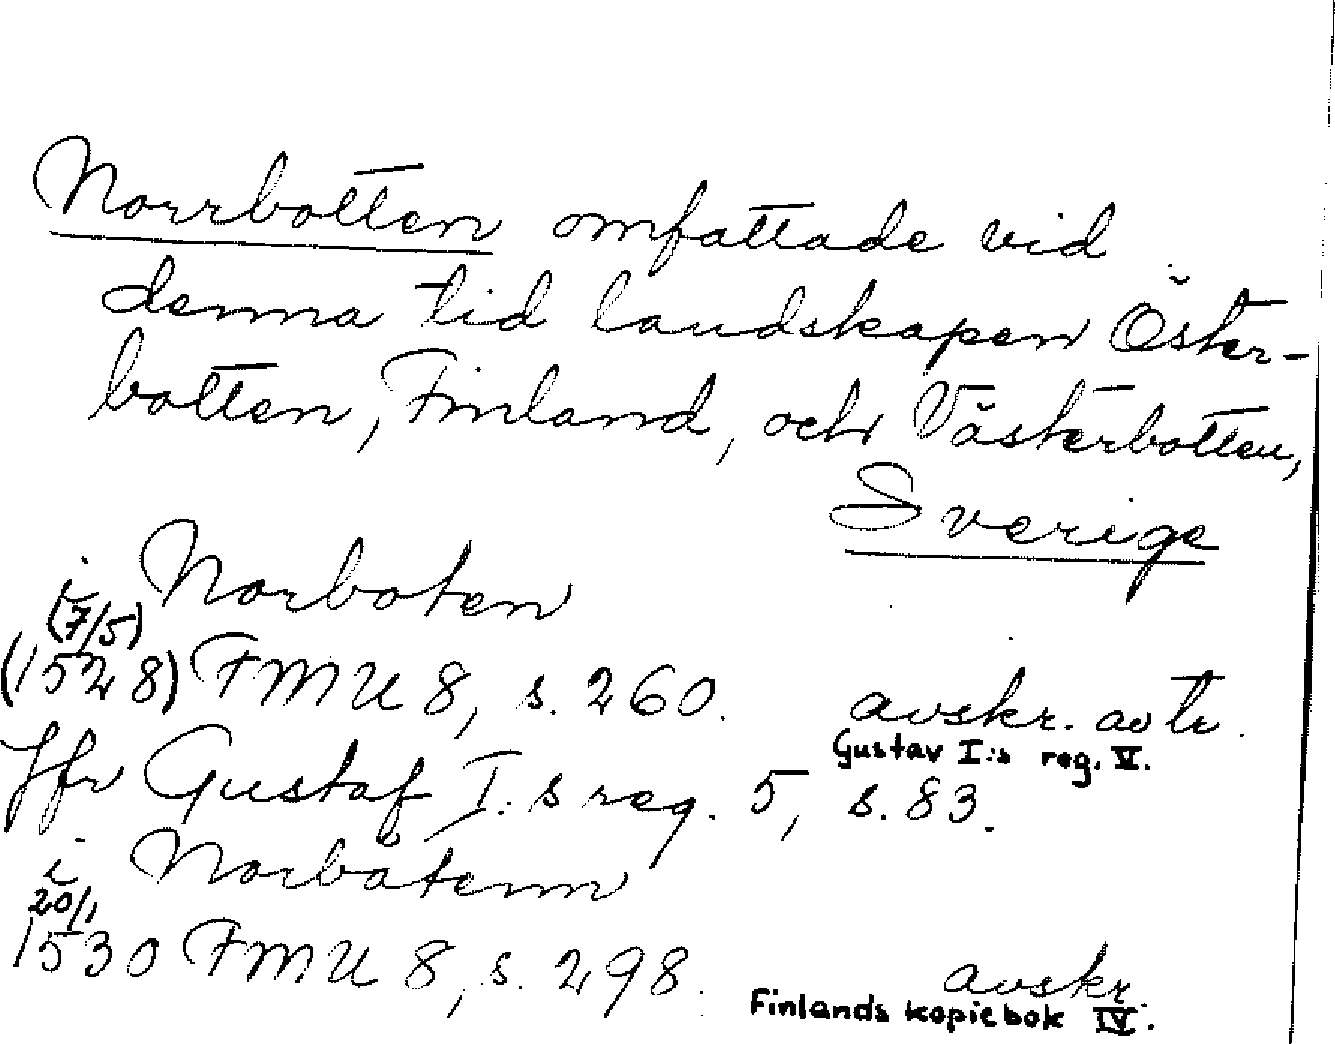 Norrbotten omfattade vid
denna tid landskapen Öster-
botten, Finland, och Västerbotten,
Sverige
i Norboten
(7/5)
(1528) FMU 8, s. 260. avskr. av tr.
Gustav I:s reg. V.
Jfr Gustaf I:s reg. 5, s. 83.
i Norbotenn
20/1
1530 FMU 8, s. 298. avskr.
Finlands kopiebok IV.